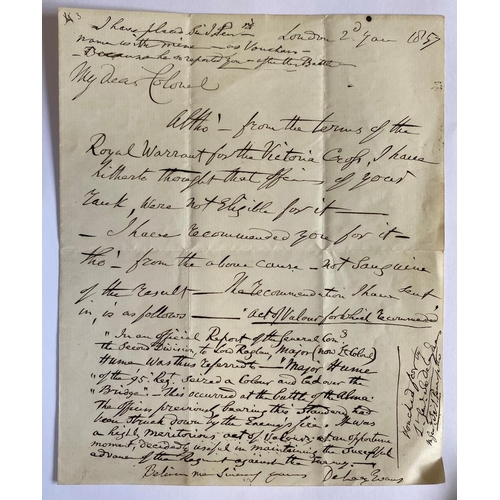 I have placed Sir J. Pen
name with mine - as Vouchers -
Because he reported you - after the Battle
London 2d Jan 1857
My dear Colonel
Altho' - from the terms of the
Royal Warrant for the Victoria Cross, I have
hitherto thought that officers of your
rank, were not Eligible for it -
- I have Recommended you for it -
tho' - from the above cause - not Sanguine
of the Result - The recommendation I have sent
in, is as follows - "act of Valour for which Recommended
"In an Official Report of the General Comg
the Second Division, to Lord Raglan, Major (now Lt Colonel
Hume was thus referred to - "Major Hume
"of the 95 Reg. Seized a Colour and led over the
"Bridge. This occurred at the battle of the Alma.
The officer previously bearing this Standard had
been Struck down by the Enemy's fire. It was
an highly meritorious act of Valour, at an opportune
moment, decidedly useful in maintaining the Successful
advance of the Regiment against the Enemy -
Believe me Sincerely yours De Lacy Evans